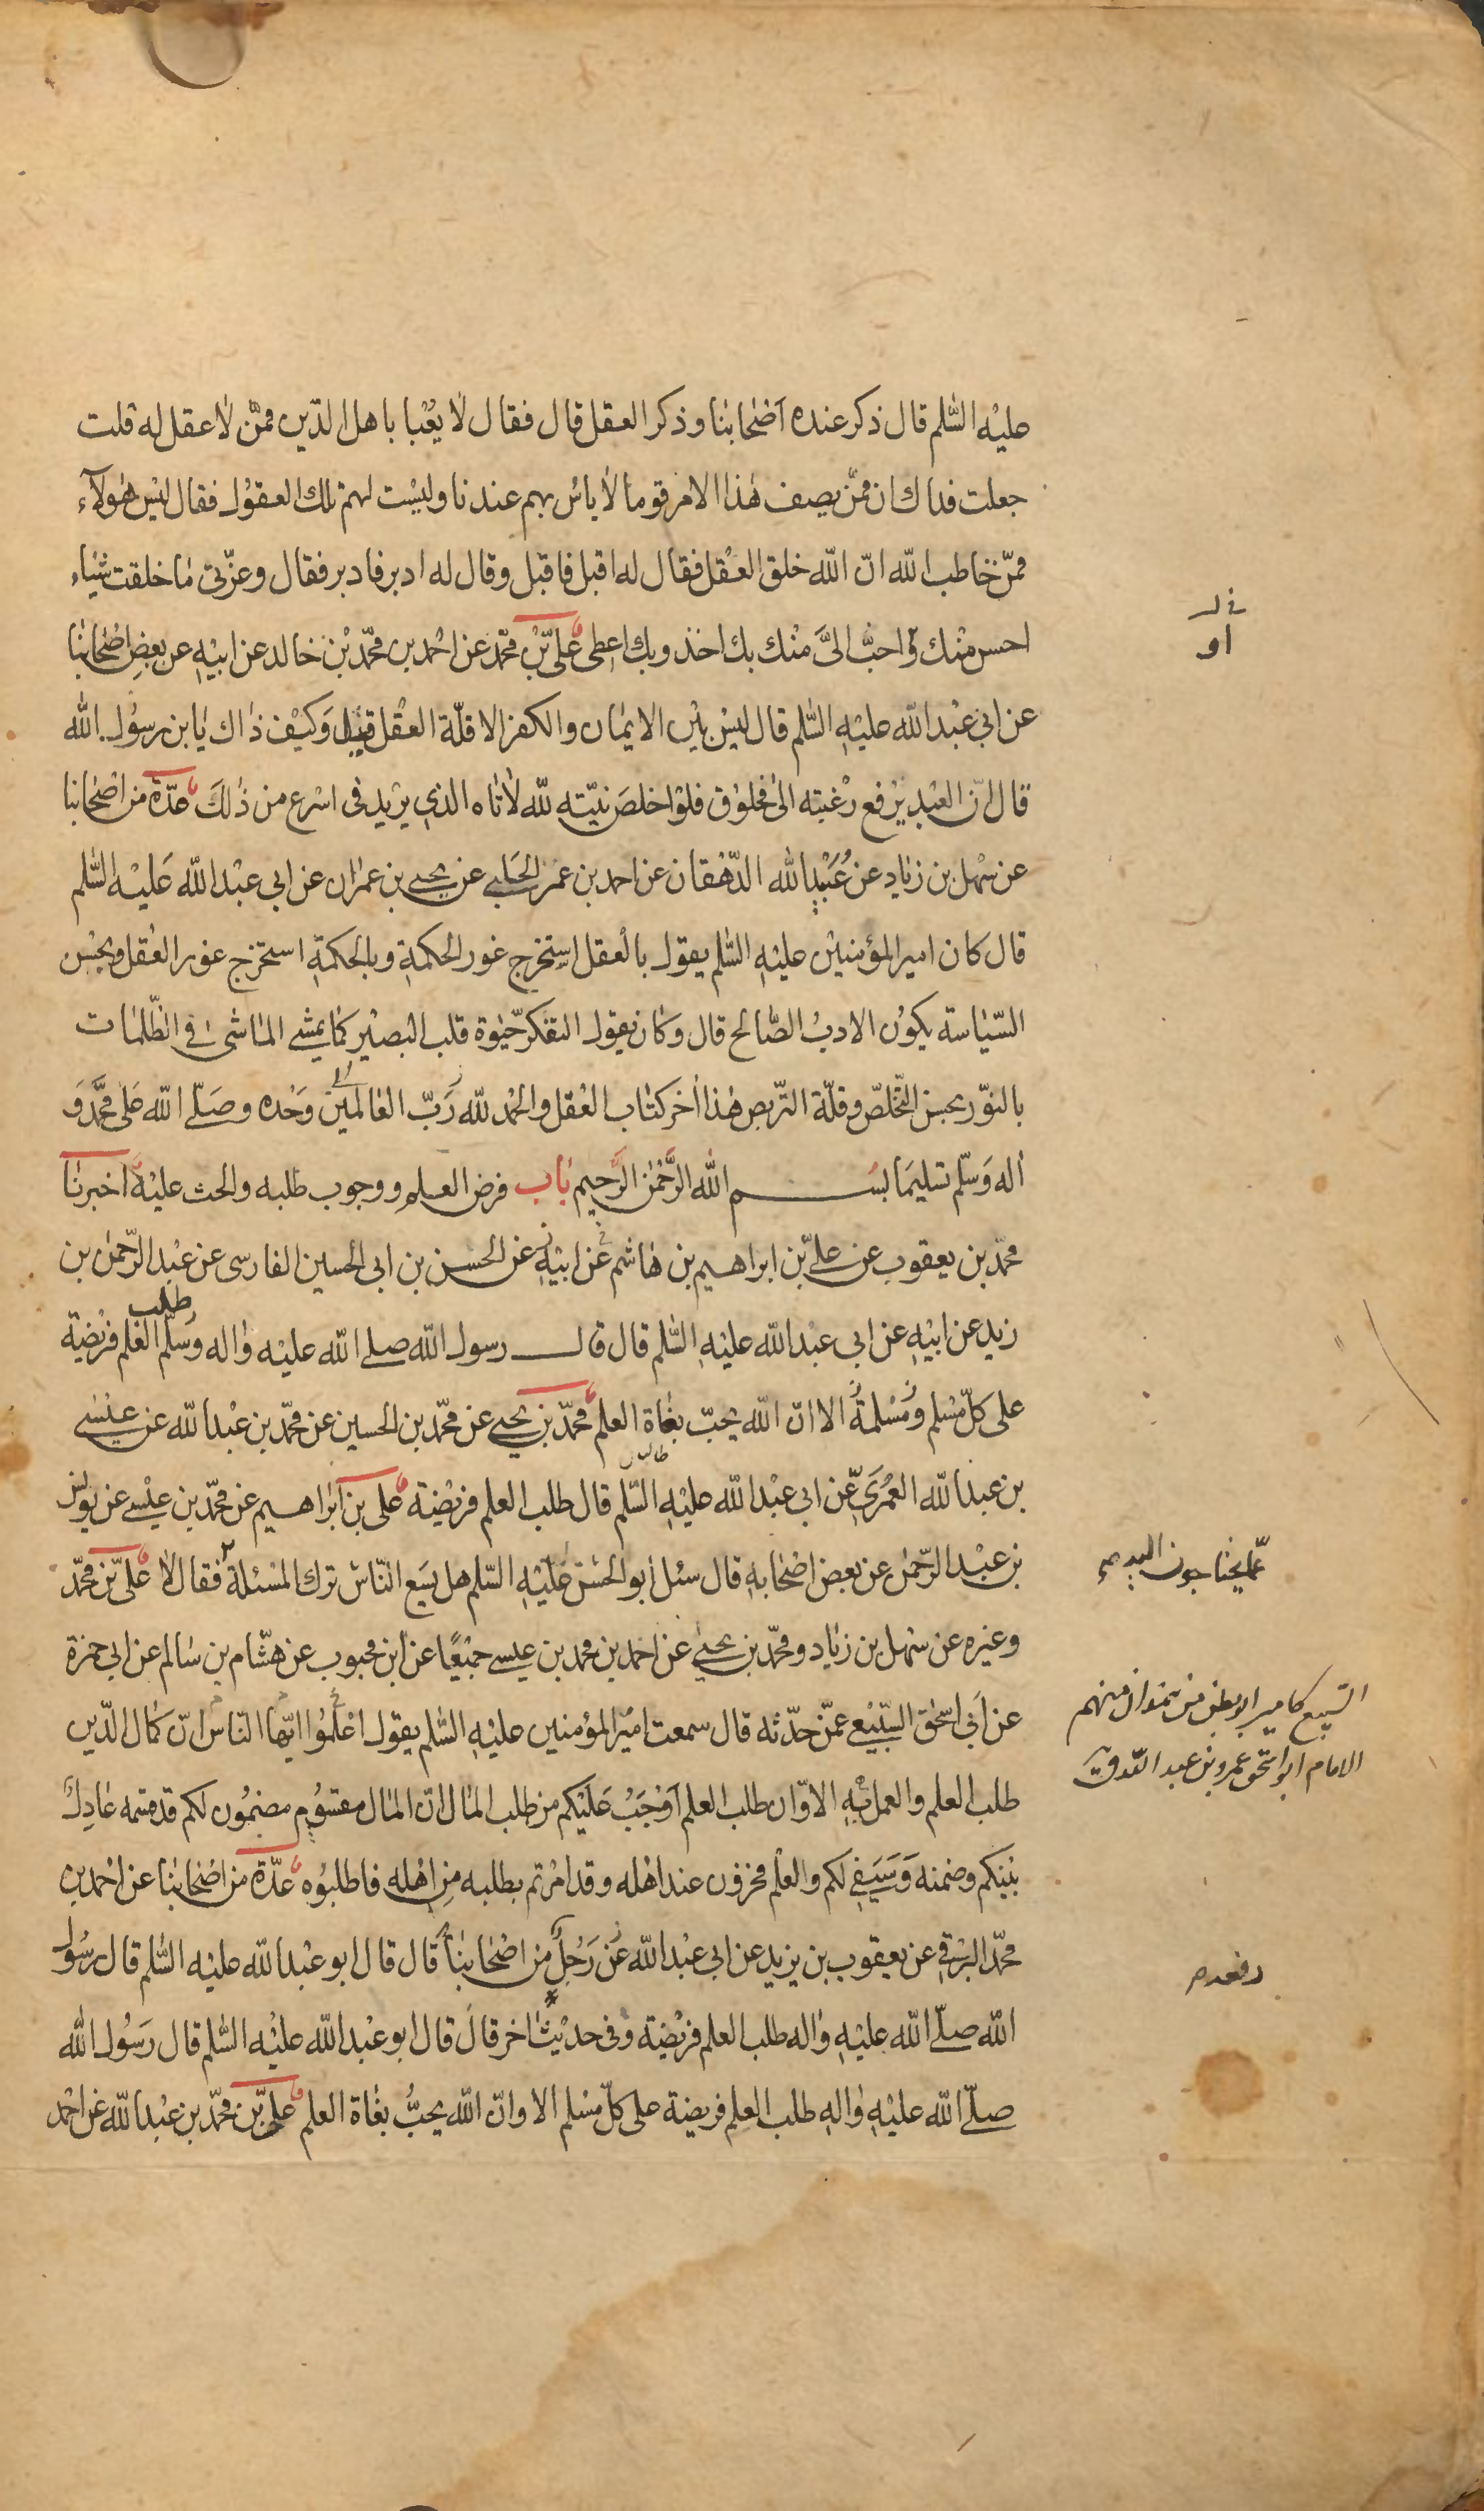 عليه السّلم قال ذكر عنده اصحابنا وذكر العقل قال فقال لا يعبا باهل الدّين ممّن لا عقل له قلت
جعلت فداك ان ممّن يصف هذا الامر قوما لا باس بهم عندنا وليست لهم تلك العقول فقال ليس هولآء
ممّن خاطب الله انّ الله خلق العقل فقال له اقبل فاقبل وقال له ادبر فادبر فقال وعزّتى ما خلقت شيئاء
احسن منك واحبّ الىّ منك بك اخذ وبك اعطى علىّ بن محمّد عن احمد بن محمّد بن خالد عن ابيه عن بعض اصحابنا
او
عن ابى عبد الله عليه السّلم قال ليس بين الايمان والكفر الا قلّة العقل قيل وكيف ذاك يا بن رسول الله
قال انّ العبد يرفع رغبته الى مخلوق فلو اخلص نيّته لله لاتاه الذى يريد فى اسرع من ذلك عدّة من اصحابنا
عن سهل بن زياد عن عبيد الله الدّهقان عن احمد بن عمر الحلبى عن يحيى بن عمران عن ابى عبد الله عليه السّلم
قال كان امير المؤمنين عليه السّلم يقول بالعقل استخرج غور الحكمة وبالحكمة استخرج غور العقل وبحسن
السّياسة يكون الادب الصّالح قال وكان يقول التفكّر حيوة قلب البصير كما يمشى الماشى فى الظّلمات
بالنّور بحسن التّخلّص وقلّة التّربص هذا اخر كتاب العقل والحمد لله ربّ العالمين وحده وصلّى الله على محمّد و
اله وسلّم تسليما بسم الله الرّحمن الرّحيم باب فرض العلم ووجوب طلبه والحث عليه اخبرنا
محمّد بن يعقوب عن علىّ بن ابراهيم بن هاشم عن ابيه عن الحسن بن ابى الحسين الفارسى عن عبد الرّحمن بن
زيد عن ابيه عن ابى عبد الله عليه السّلم قال قال رسول الله صلى الله عليه واله وسلّم طلب العلم فريضة
على كلّ مسلم ومسلمة الا انّ الله يحبّ بغاة العلم محمّد بن يحيى عن محمّد بن الحسين عن محمّد بن عبد الله عن عيسى
بن عبد الله العمرىّ عن ابى عبد الله عليه السّلم قال طلب العلم فريضة على بن ابراهيم عن محمّد بن عيسى عن يونس
بن عبد الرّحمن عن بعض اصحابه قال سئل ابو الحسن عليه السّلم هل يسع النّاس ترك المسئلة فقال لا علىّ بن محمّد
عمّا يحتاجون اليه
وغيره عن سهل بن زياد ومحمّد بن يحيى عن احمد بن محمد بن عيسى جميعًا عن ابن محبوب عن هشام بن سالم عن ابى حمزة
عن ابى اسحق السّبيعى عمّن حدّثه قال سمعت امير المؤمنين عليه السّلم يقول اعلموا ايّها النّاس انّ كمال الدّين
السّبيع كامير ابو بطن من همدان منهم
الامام ابو اسحق عمرو بن عبد الله
طلب العلم والعمل به الا وان طلب العلم اوجب عليكم من طلب المال انّ المال مقسوم مضمون لكم قد قسمه عادل
بينكم وضمنه وسيفى لكم والعلم مخزون عند اهله وقد امرتم بطلبه من اهله فاطلبوه عدّة من اصحابنا عن احمد بن
محمّد البرقى عن يعقوب بن يزيد عن ابى عبد الله عن رجل من اصحابنا قال قال ابو عبد الله عليه السّلم قال رسول
رفعه
الله صلّى الله عليه واله طلب العلم فريضة وفى حديث اخر قال قال ابو عبد الله عليه السّلم قال رسول الله
صلّى الله عليه واله طلب العلم فريضة على كلّ مسلم الا وانّ الله يحبّ بغاة العلم علىّ بن محمّد بن عبد الله عن احمد